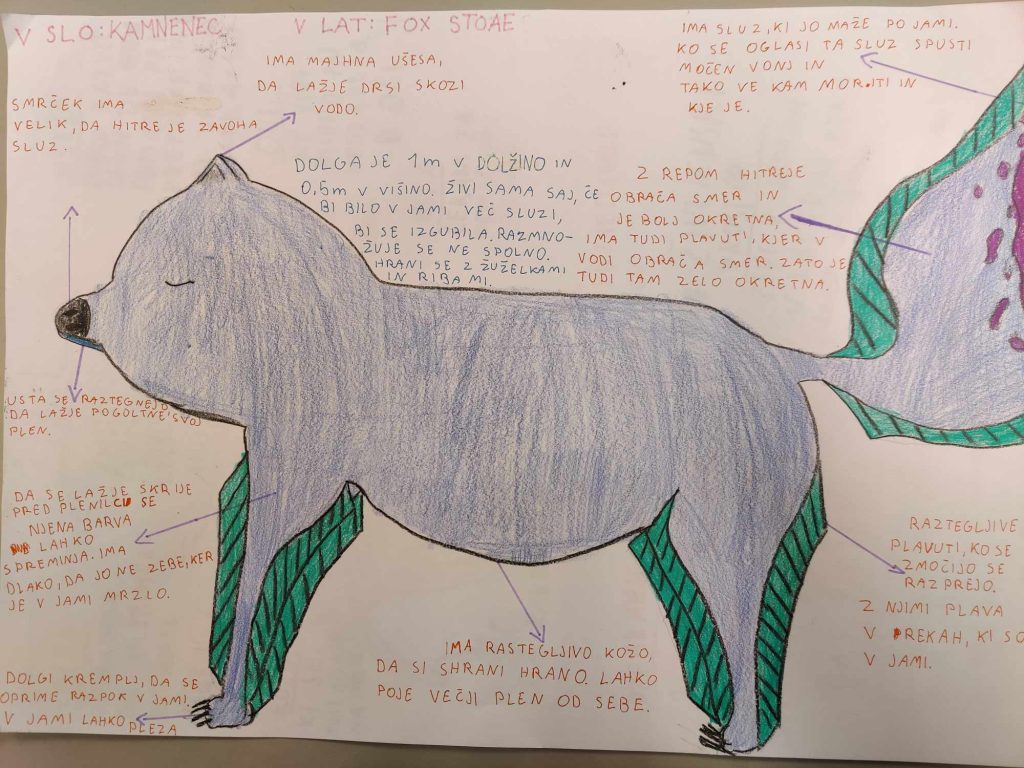 V SLO: KAMNENEC
V LAT: FOX STOAE
IMA MAJHNA UŠESA,
DA LAŽJE DRSI SKOZI
VODO.
IMA SLUZ, KI JO MAŽE PO JAMI.
KO SE OGLASI TA SLUZ SPUSTI
MOČEN VONJ IN
TAKO VE KAM MORITI IN
KJE JE.
SMRČEK IMA
VELIK, DA HITREJE ZAVOHA
SLUZ.
DOLGA JE 1m V DOLŽINO IN
0,5m V VIŠINO. ŽIVI SAMA SAJ, ČE
BI BILO V JAMI VEČ SLUZI,
BI SE IZGUBILA, RAZMNO-
ŽUJE SE NE SPOLNO.
HRANI SE Z ŽUŽELKAMI
IN RIBAMI.
Z REPOM HITREJE
OBRAČA SMER IN
JE BOLJ OKRETNA,
IMA TUDI PLAVUTI, KJER V
VODI OBRAČA SMER. ZATO JE
TUDI TAM ZELO OKRETNA.
USTA SE RAZTEGNEJO
DA LAŽJE POGOLTNE SVOJ
PLEN.
DA SE LAŽJE SKRIJE
PRED PLENILCU SE
NJENA BARVA
LAHKO
SPREMINJA. IMA
DLAKO, DA JO NE ZEBE, KER
JE V JAMI MRZLO.
RAZTEGLJIVE
PLAVUTI, KO SE
ZMOČIJO SE
RAZPREJO.
Z NJIMI PLAVA
V PREKAH, KI SO
V JAMI.
IMA RASTEGLJIVO KOŽO,
DA SI SHRANI HRANO. LAHKO
POJE VEČJI PLEN OD SEBE.
DOLGI KREMPLJI, DA SE
OPRIME RAZPOK V JAMI.
V JAMI LAHKO
PLEZA